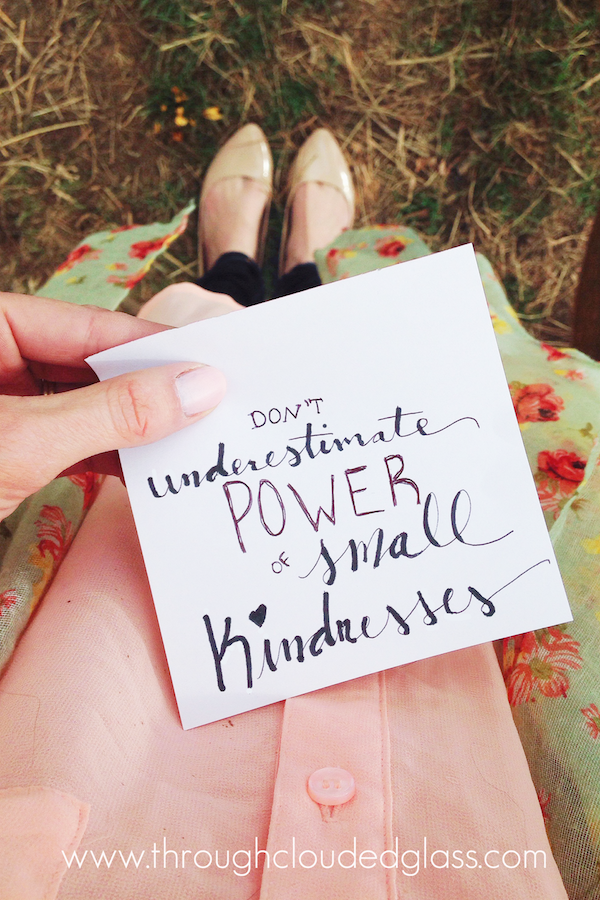 DON'T
underestimate
POWER
OF small
Kindnesses
www.throughcloudedglass.com